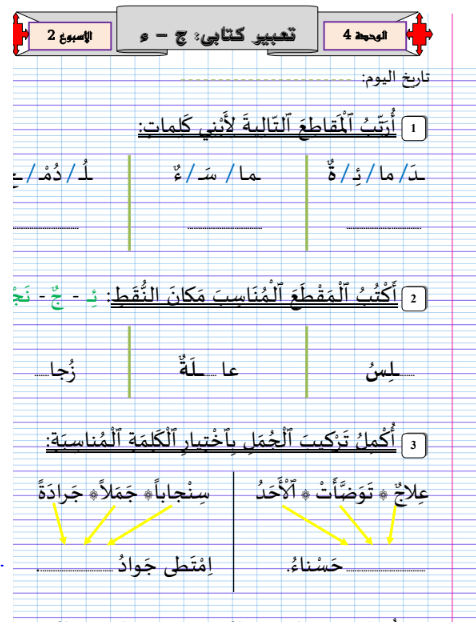 الوحدة 4 تعبير كتابي: ج – ء الأسبوع 2
تاريخ اليوم:
1 أُرَتِّبُ ٱلْمَقاطِعَ ٱلتّاليةَ لِأَبْنِي كَلِماتٍ:
ـدَ/ ما/ ئِـ/ ةٌ ـما/ سَـ/ ءٌ ـلُـ/ دُمْـ/
2 أَكْتُبُ ٱلْمَقْطَعَ ٱلْمُنَاسِبَ مَكانَ النُّقَطِ: ئِـ - جٌ - نَجْـ
......ـلِسُ عا......ـلَةٌ زُجا......
3 أُكْمِلُ تَرْكيبَ ٱلْجُمَلِ بِٱخْتِيارِ ٱلْكَلِمَةِ ٱلْمُناسِبَةِ:
عِلاجٌ * تَوَضَّأَتْ * ٱلْأَحَدُ سِنْجاباً* جَمَلاً* جَرادَةً
...................... حَسْناءُ. اِمْتَطى جَوادُ ......................